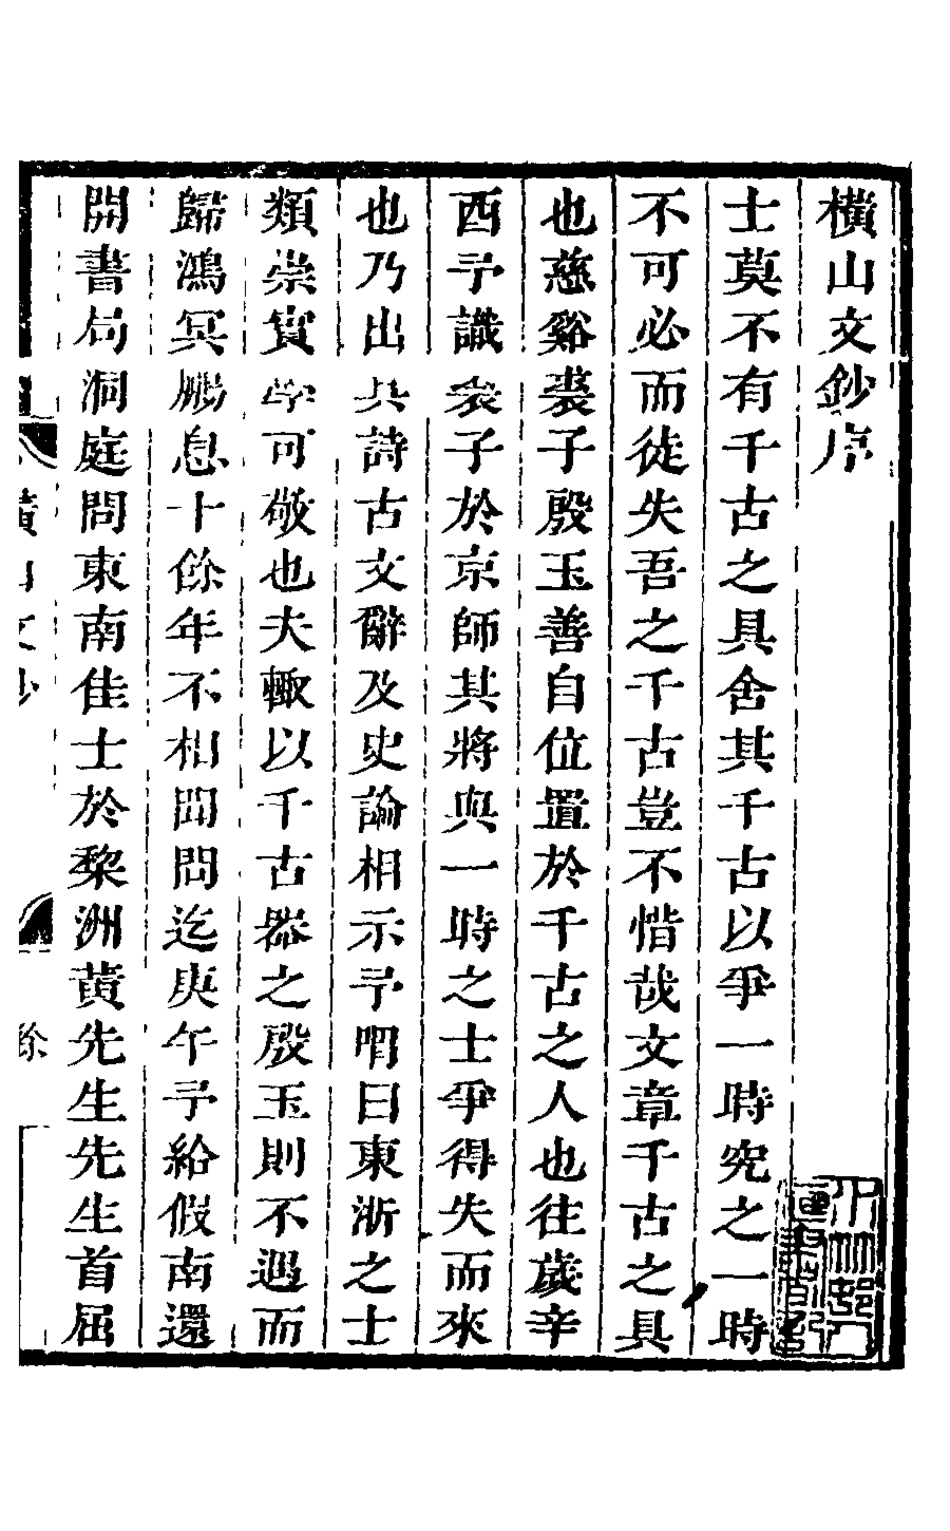 橫山文鈔序
士莫不有千古之具舍其千古以爭一時究之一時
不可必而徒失吾之千古豈不惜哉文章千古之具
也慈谿裘子殷玉善自位置於千古之人也往歲辛
酉予識裘子於京師其將與一時之士爭得失而來
也乃出其詩古文辭及史論相示予喟曰東浙之士
類崇實學可敬也夫輙以千古器之殷玉則不遇而
歸鴻冥鷃息十餘年不相聞問迄庚午予給假南還
開書局洞庭問東南佳士於黎洲黃先生先生首屈